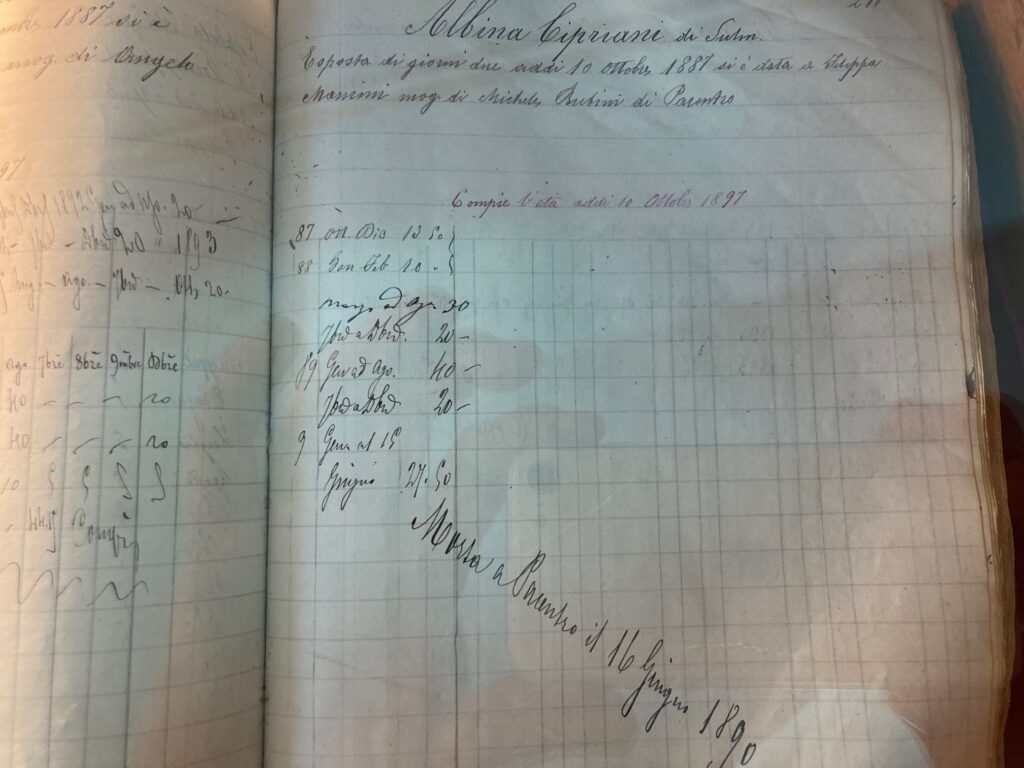 mbre 1887 si è
mog di Angelo.
97
1892 Gen ad Ago. 20
Dbre 20 " 1893
Mag - Ago. - 7bre - Ott. 20-
ago. 7bre 8bre 9mbre Dbre
40 20
40 20
10 5 5 5 5
44.15 Compì
Albina Cipriani di Sulm.
Esposta di giorni due addì 10 Ottobre 1887 si è data a Filippa
Mancini mog di Michele Rubini di Pacentro
Compie l'età addì 10 Ottobre 1897
87 Ott. Dic 13 50
88 Gen Feb 10 "
Marzo ad Ago 30
7bre a Dbre. 20 -
89 Gen ad Ago. 40 -
7bre a Dbre 20 -
9 Genn al 15
Giugno 27.50
Morta a Pacentro il 16 Giugno 1890